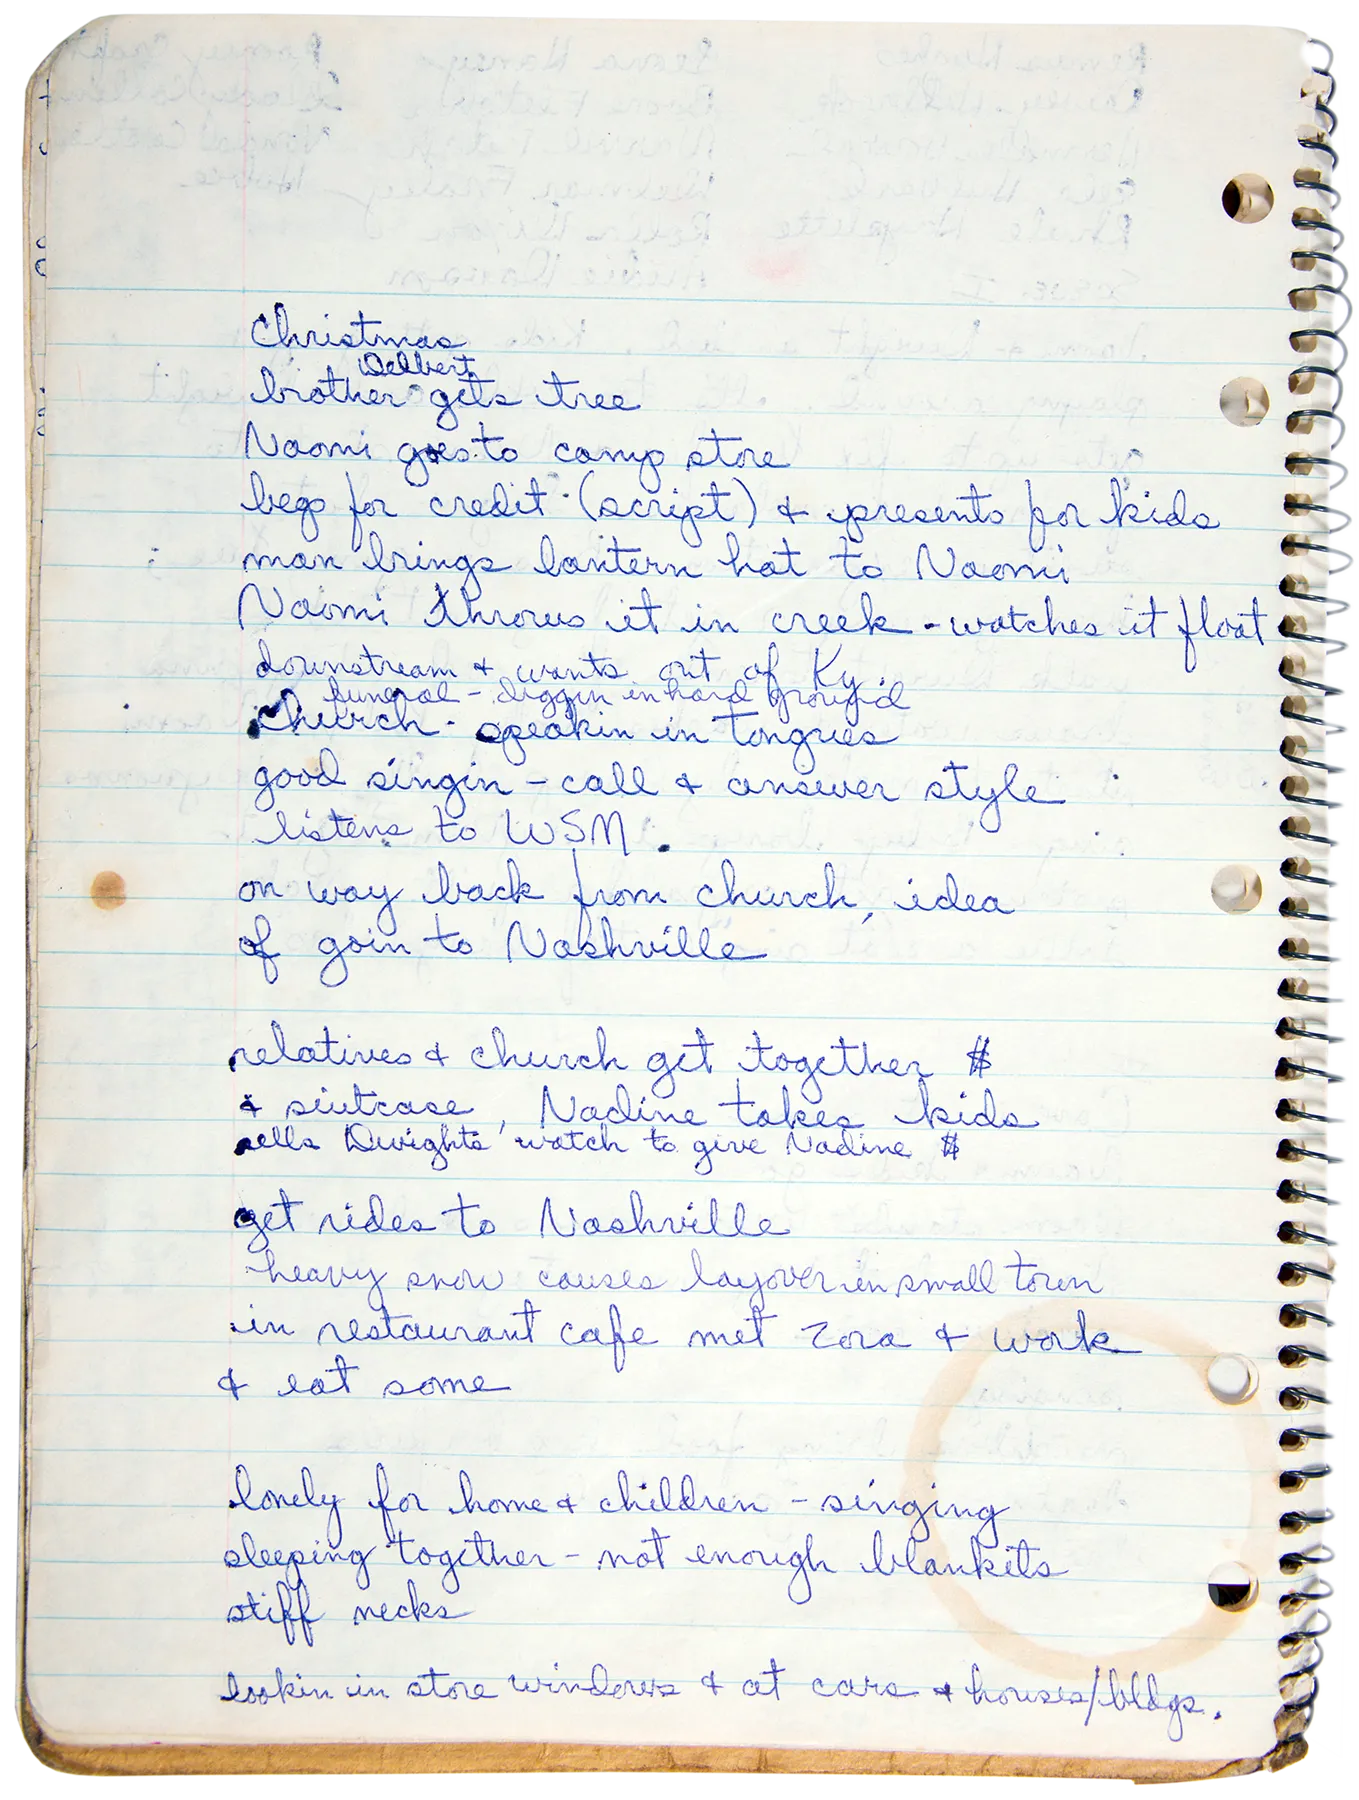 Christmas
Delbert
brother gets tree
Naomi goes to camp store
begs for credit (script) & presents for kids
man brings lantern hat to Naomi
Naomi throws it in creek - watches it float
downstream & wants out of Ky
funeral - diggin in hard ground
church - speakin in tongues
good singin - call & answer style
listens to WSM.
on way back from church, idea
of goin to Nashville
relatives & church get together $
& suitcase, Nadine takes kids
sells Dwights watch to give Nadine $
get rides to Nashville
heavy snow causes layover in small town
in restaurant cafe met Zora & work
& eat some
lonely for home & children - singing
sleeping together - not enough blankits
stiff necks
lookin in store windows & at cars & houses/bldgs.